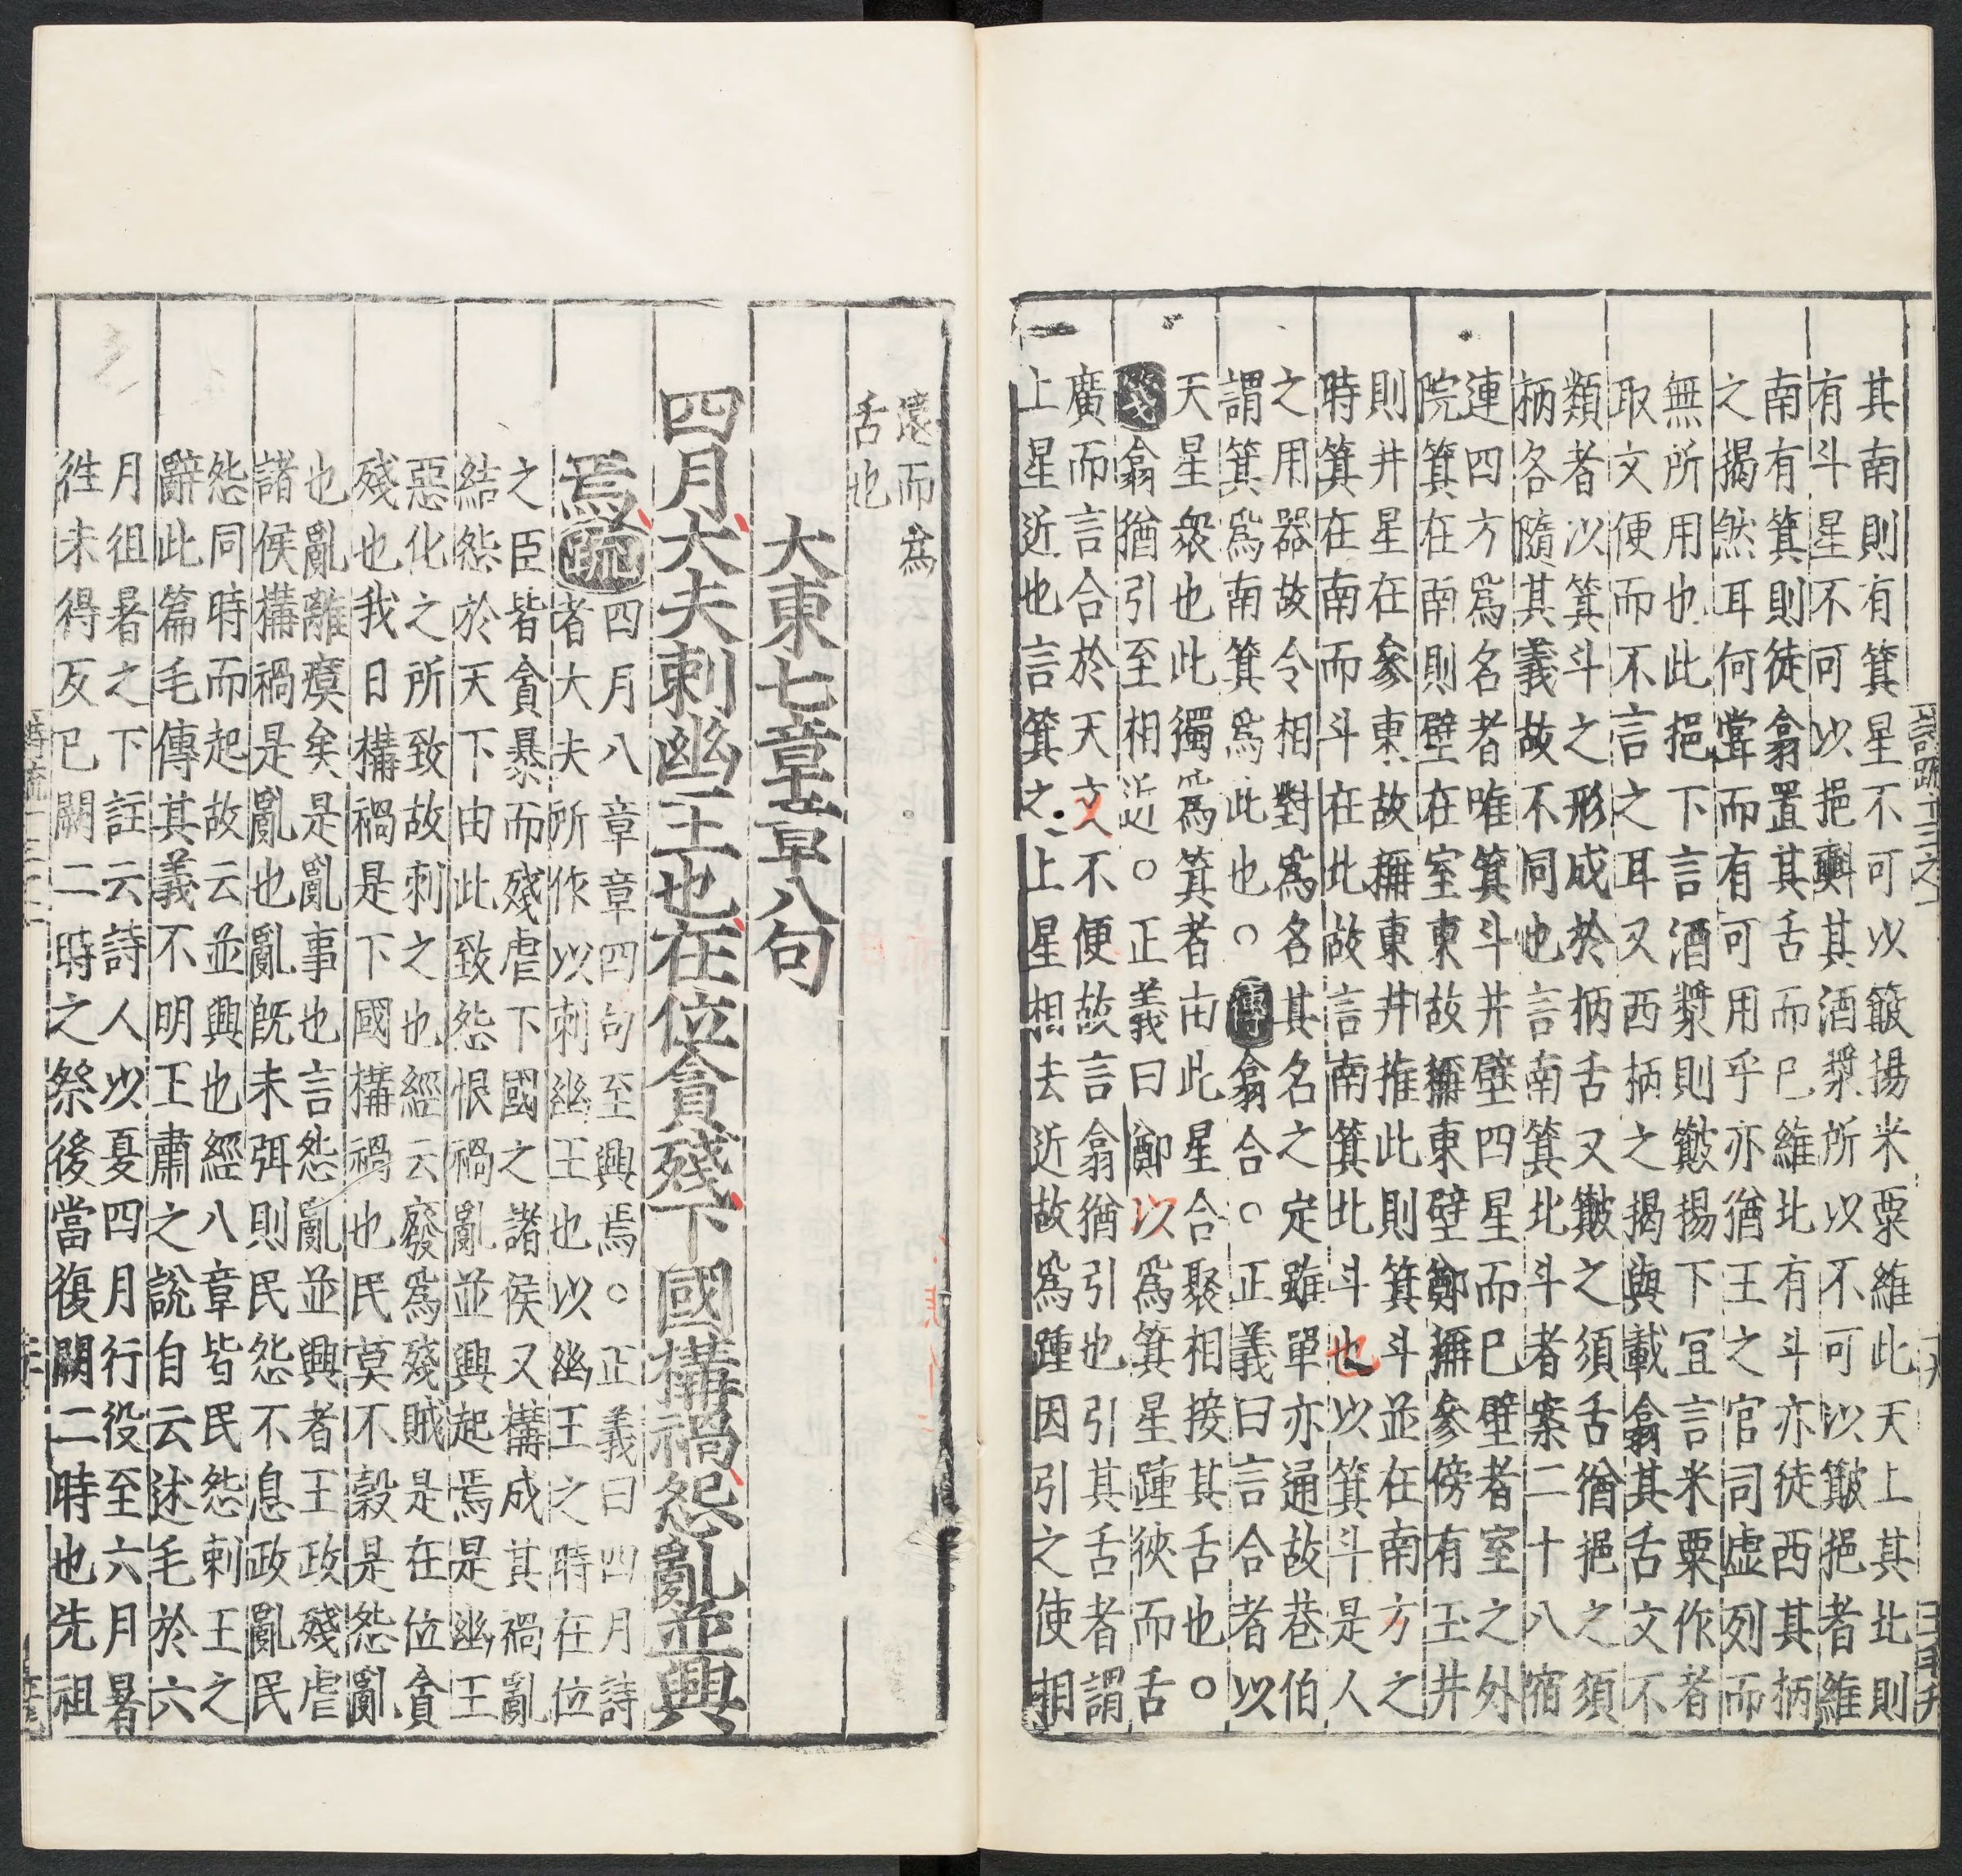 其南則有箕星不可以簸揚米粟維此天上其北則
有斗星不可以挹㪺其酒漿所以不可以簸挹者維
南有箕則徒翕置其舌而已維北有斗亦徒西其柄
之揭然耳何嘗而有可用乎亦猶王之官司虛列而
無所用也此挹下言酒漿則簸揚下宜言米粟作者
取文便而不言之耳又西柄之揭與載翕其舌文不
類者以箕斗之形成於柄舌又簸之須舌猶挹之須
柄各隨其義故不同也言南箕北斗者案二十八宿
連四方爲名者唯箕斗井壁四星而已壁者室之外
院箕在南則壁在室東故稱東壁鄭稱參傍有玉井
則井星在參東故稱東井推此則箕斗並在南方之
時箕在南而斗在北故言南箕北斗也以箕斗是人
之用器故令相對爲名其名之定雖單亦通故巷伯
謂箕爲南箕爲此也○傳翕合○正義曰言合者以
天星衆也此獨爲箕者由此星合聚相接其舌也○
箋翕猶引至相近○正義曰鄭以爲箕星踵狹而舌
廣而言合於天文不便故言翕猶引也引其舌者謂
上星近也言箕之上星相去近故爲踵因引之使相
遠而爲
舌也
大東七章章八句
四月大夫刺幽王也在位貪殘下國構禍怨亂並興
焉疏
四月八章章四句至興焉○正義曰四月詩
者大夫所作以刺幽王也以幽王之時在位
之臣皆貪暴而殘虐下國之諸侯又構成其禍亂
結怨於天下由此致怨恨禍亂並興起焉是幽王
惡化之所致故刺之也經云廢爲殘賊是在位貪
殘也我日構禍是下國構禍也民莫不穀是怨亂
也亂離瘼矣是亂事也言怨亂並興者王政殘虐
諸侯構禍是亂也亂既未弭則民怨不息政亂民
怨同時而起故云並興也經八章皆民怨刺王之
辭此篇毛傳其義不明王肅之說自云述毛於六
月徂暑之下註云詩人以夏四月行役至六月暑
徃未得反已闕二時之祭後當復闕二時也先祖